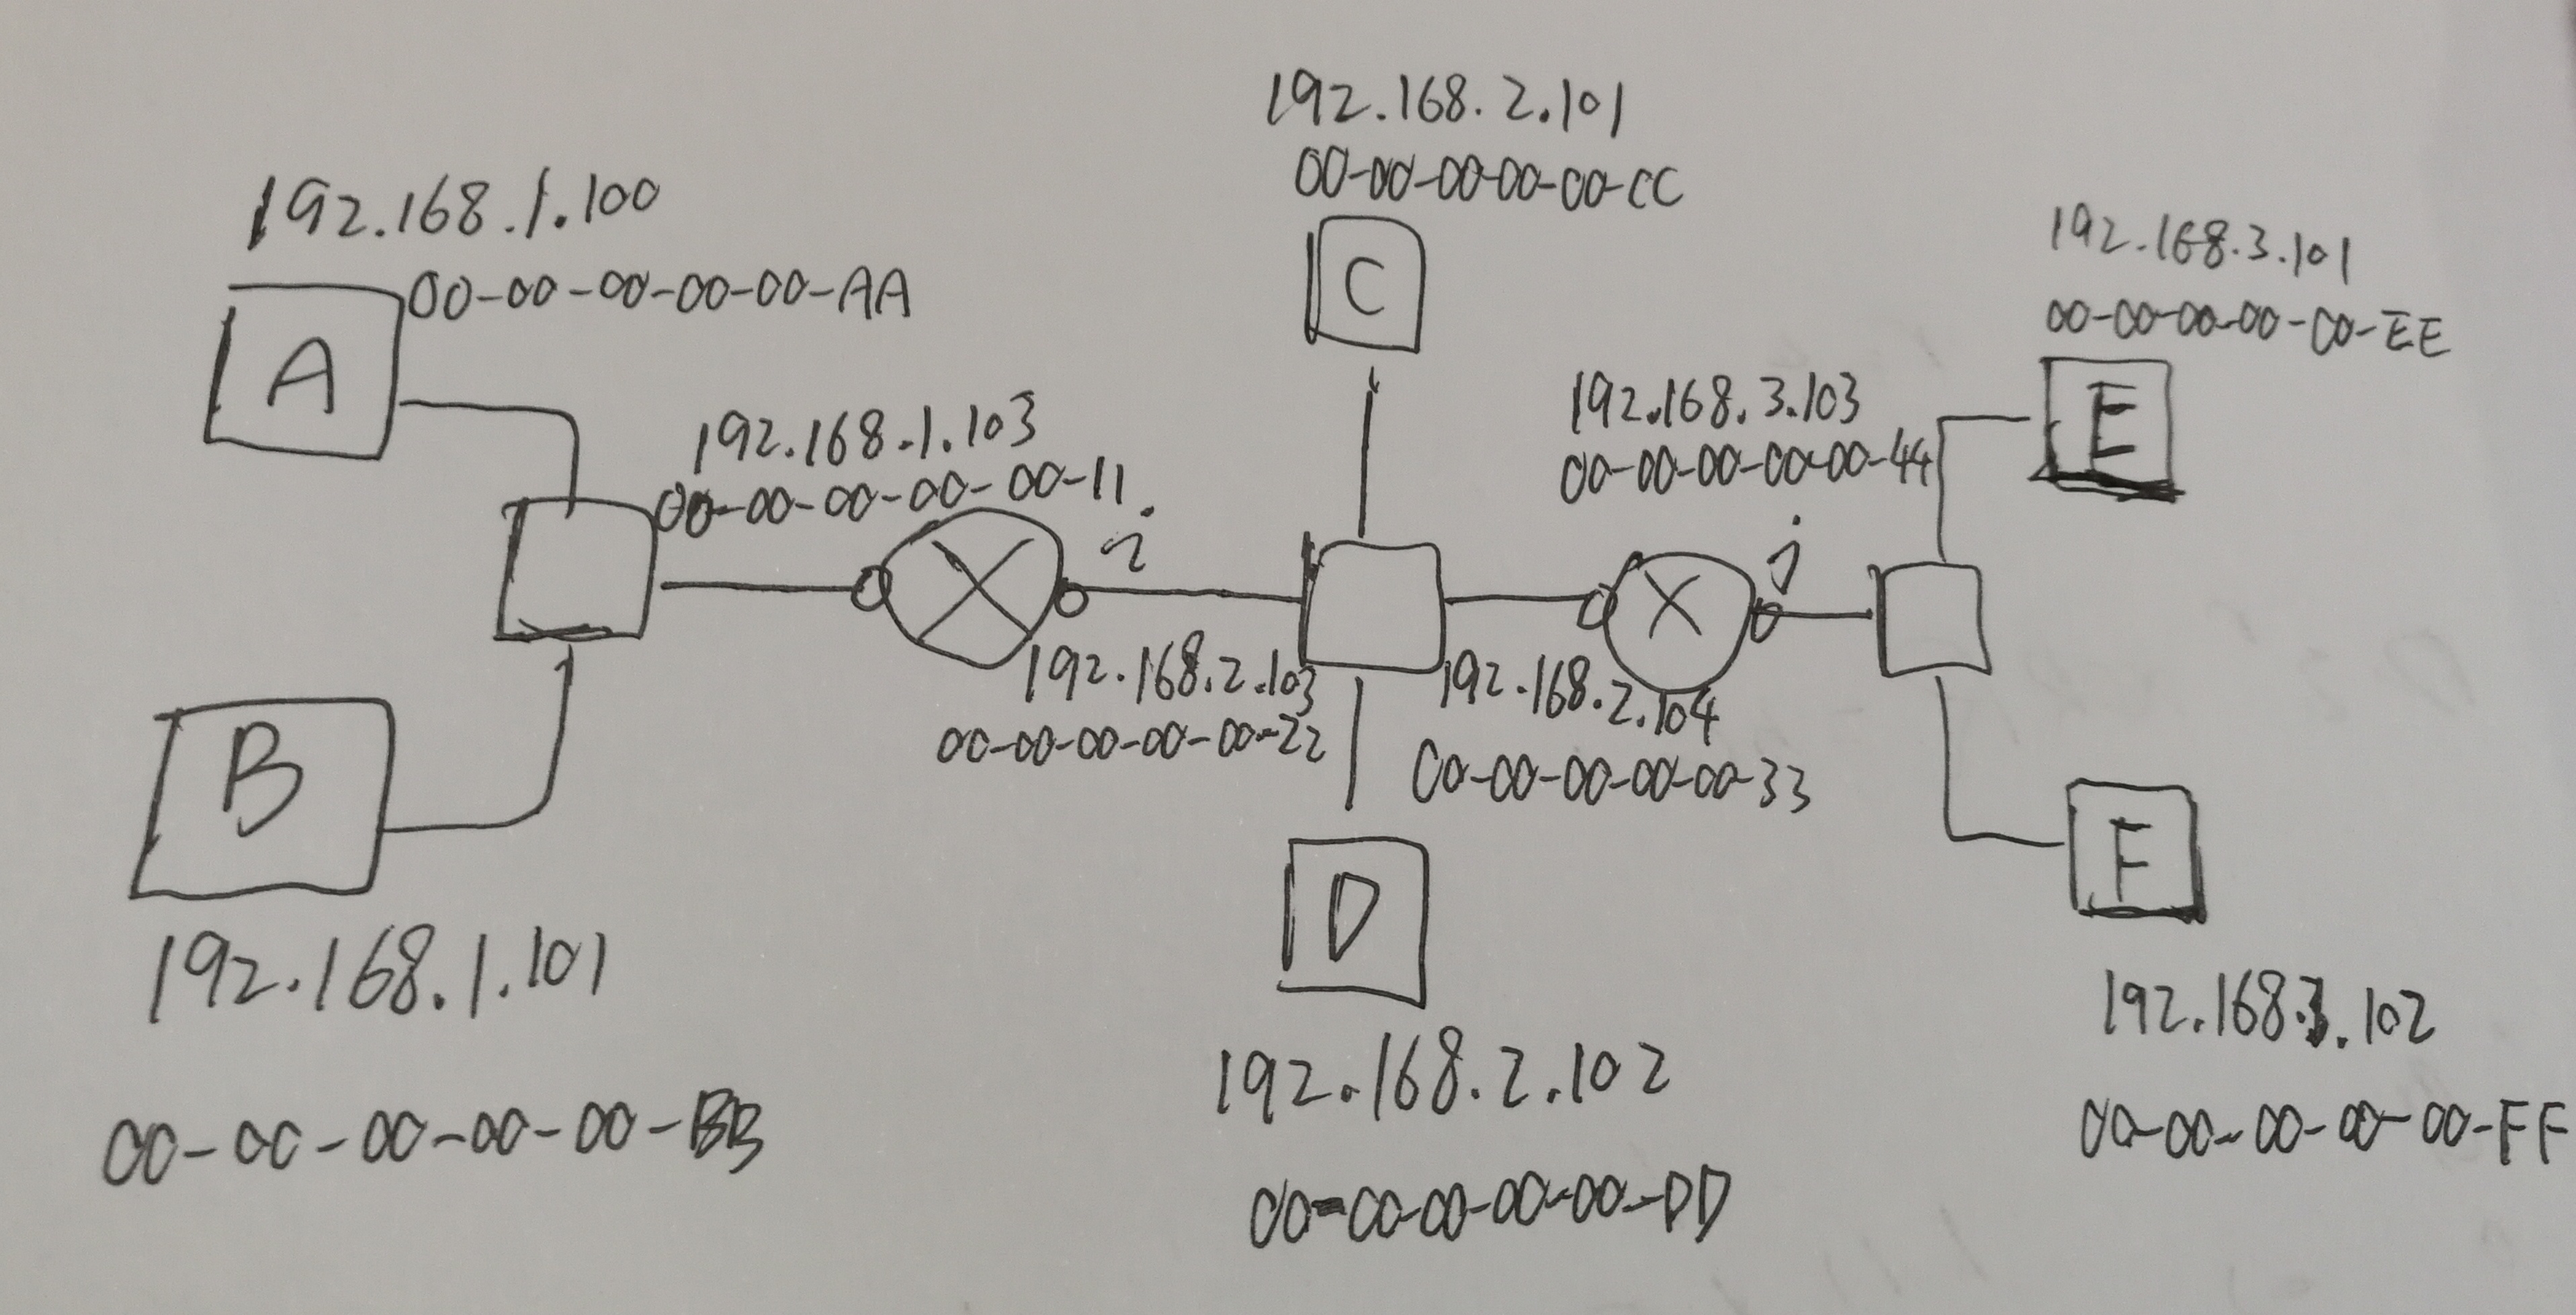 192.168.1.100
00-00-00-00-00-AA
A
192.168.1.103
00-00-00-00-00-11
i
B
192.168.1.101
00-00-00-00-00-BB
192.168.2.101
00-00-00-00-00-CC
C
192.168.2.103
00-00-00-00-00-22
192.168.2.104
00-00-00-00-00-33
D
192.168.2.102
00-00-00-00-00-DD
192.168.3.103
00-00-00-00-00-44
j
192.168.3.101
00-00-00-00-00-EE
E
F
192.168.3.102
00-00-00-00-00-FF